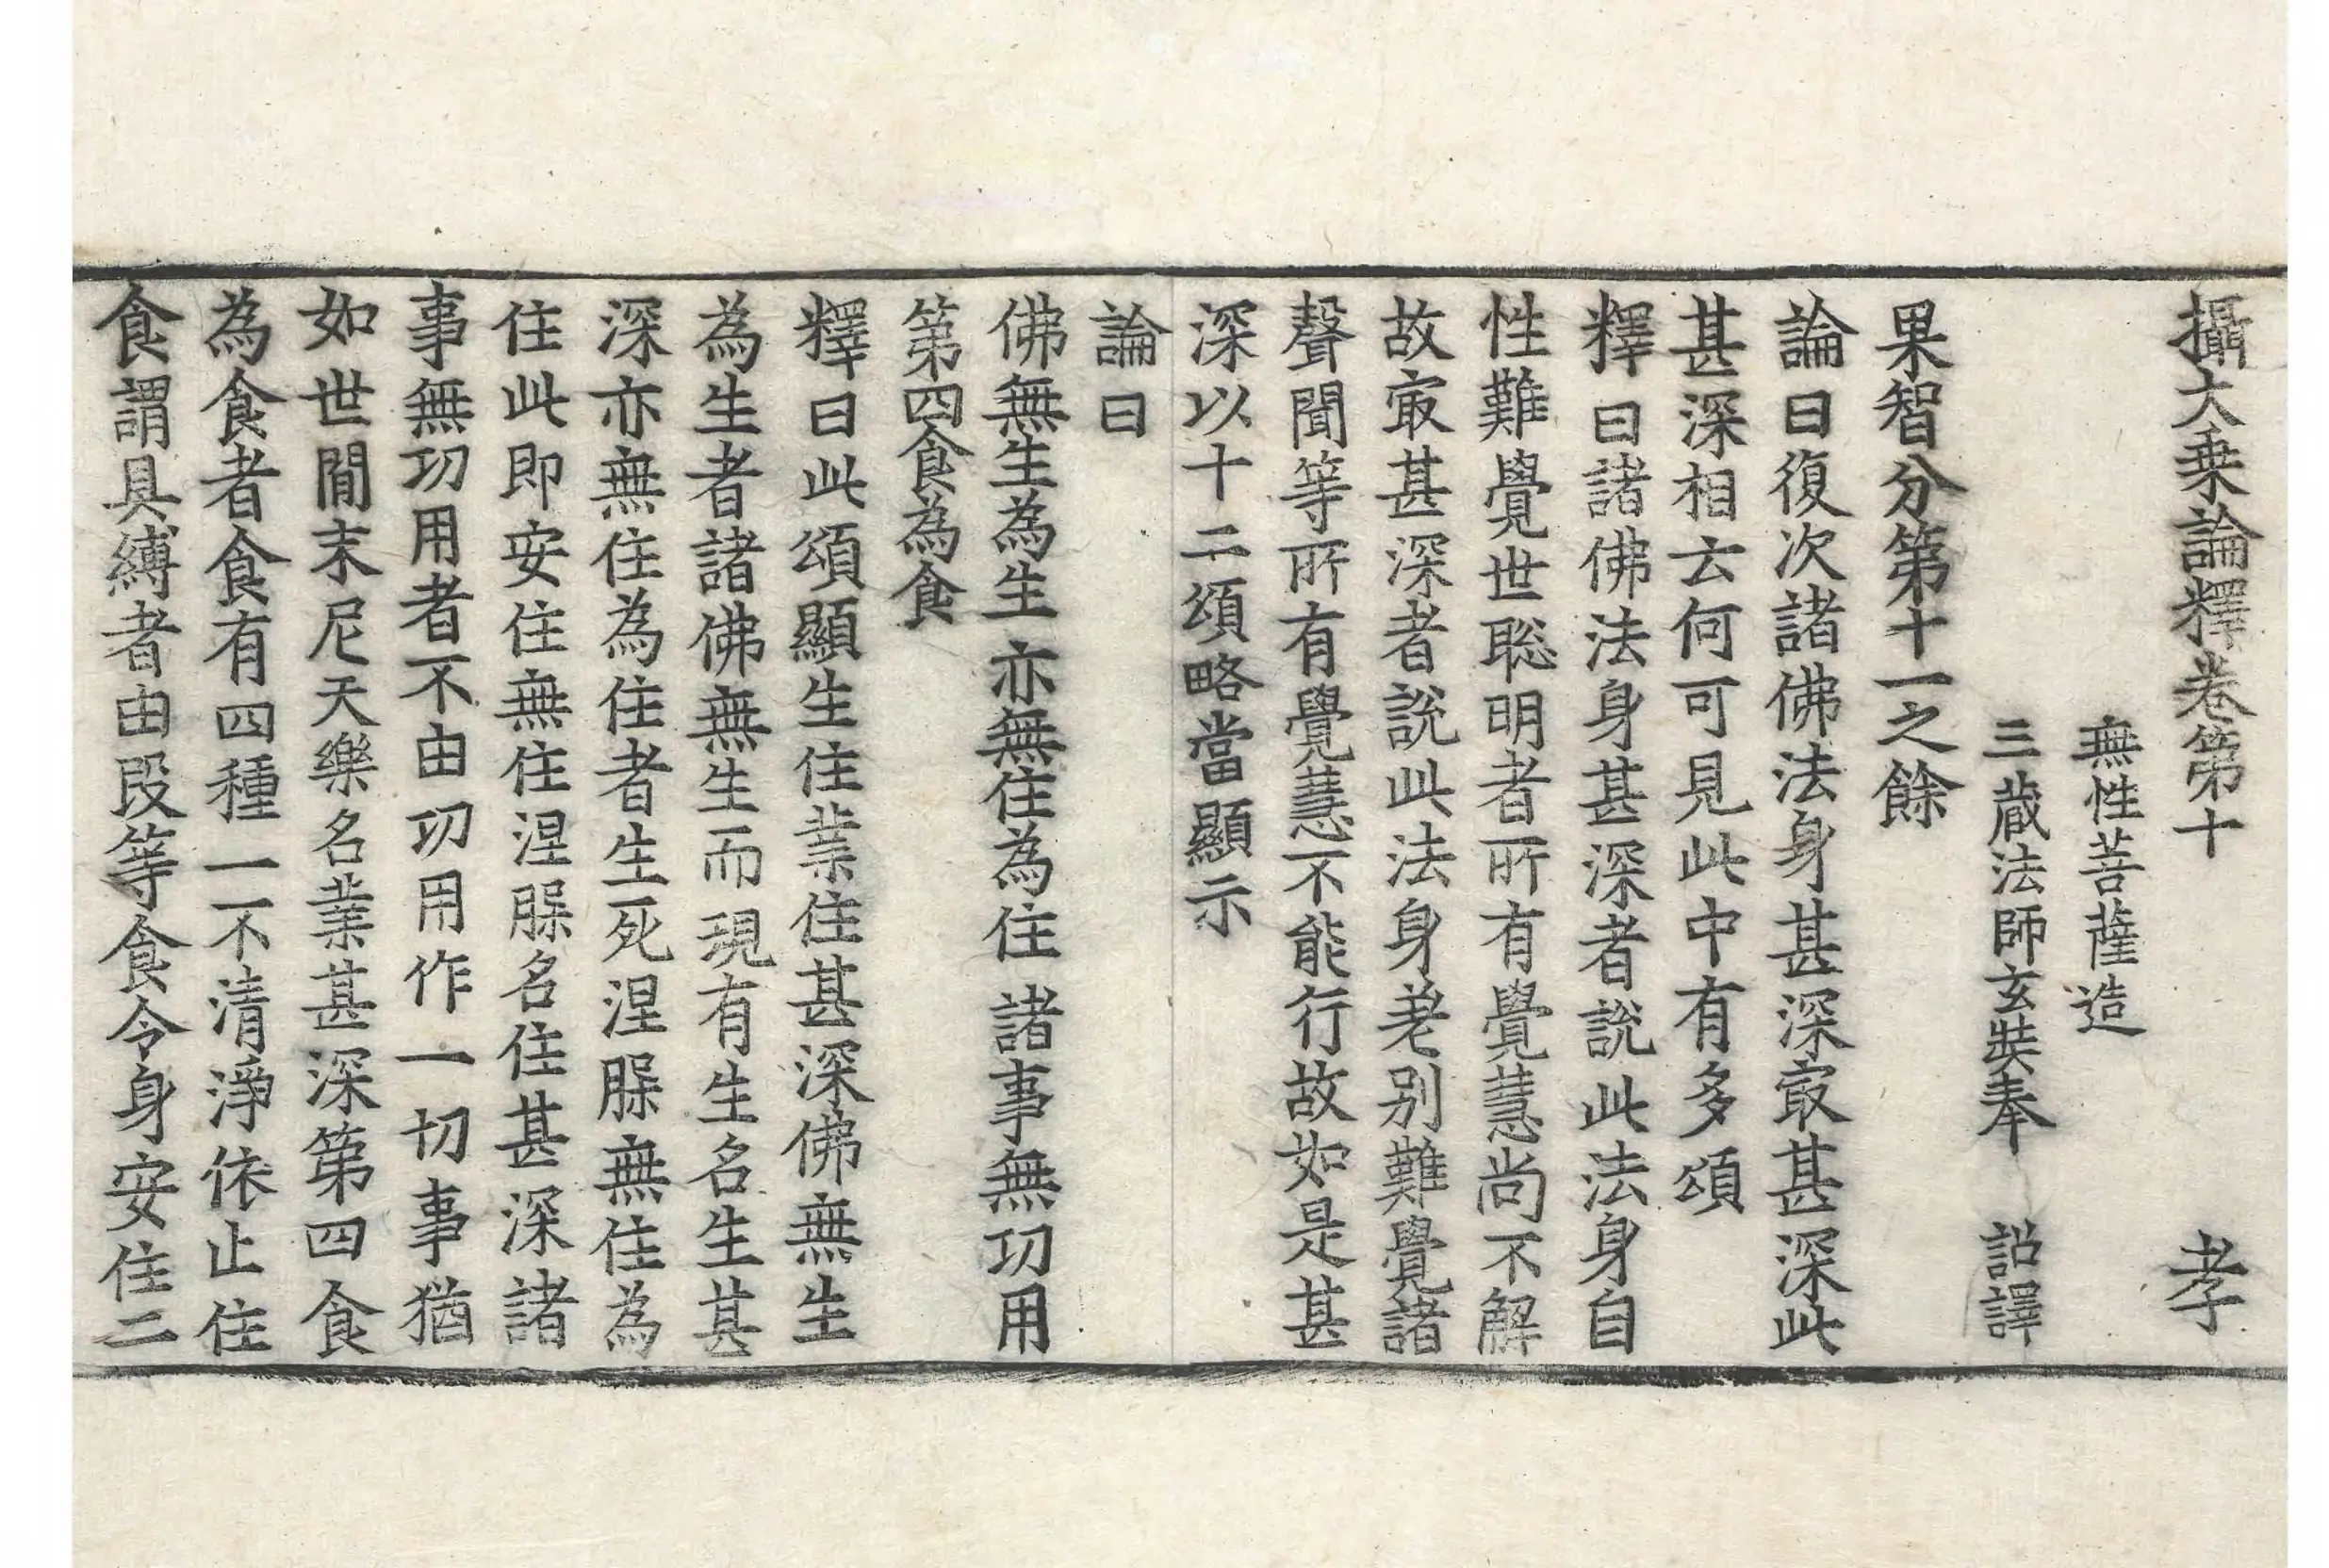 攝大乗論釋卷第十 孝
無性菩薩造
三蔵法師玄奘奉 詔譯
果智分第十一之餘
論曰復次諸佛法身甚深㝡甚深此
甚深相云何可見此中有多頌
釋曰諸佛法身甚深者說此法身自
性難覺世聡明者所有覺慧尚不解
故㝡甚深者說此法身差别難覺諸
聲聞等所有覺慧不能行故如是甚
深以十二頌略當顯示
論曰
佛無生為生 亦無住為住 諸事無功用
第四食為食
釋曰此頌顯生住業住甚深佛無生
為生者諸佛無生而現有生名生甚
深亦無住為住者生死涅槃無住為
住此即安住無住涅槃名住甚深諸
事無功用者不由功用作一切事猶
如世間末尼天樂名業甚深第四食
為食者食有四種一不清淨依止住
食謂具縛者由段等食令身安住二